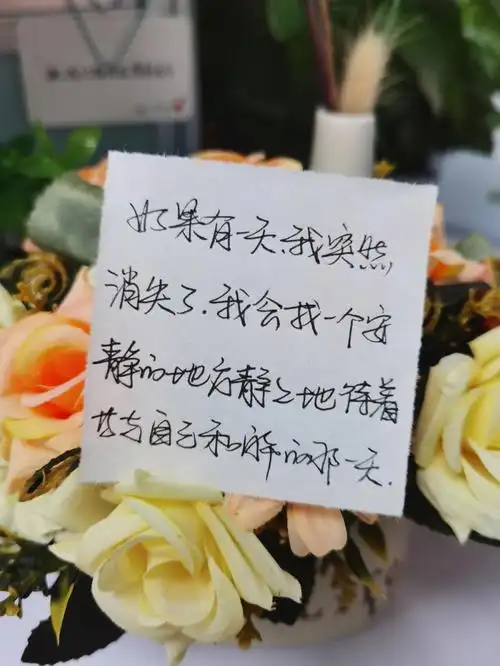 如果有一天.我突然
消失了.我会找一个安
静的地方静静地待着
共与自己和解的那一天.